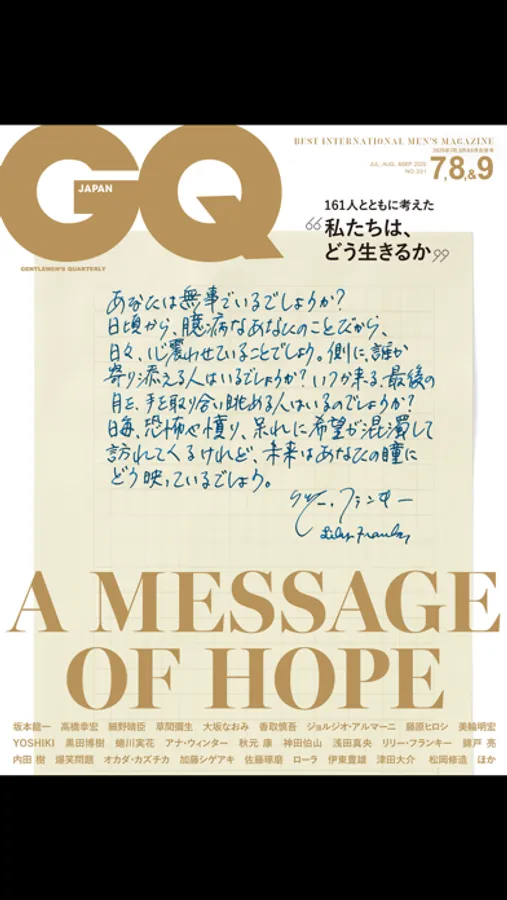 GQ
JAPAN
GENTLEMEN'S QUARTERLY
BEST INTERNATIONAL MEN'S MAGAZINE
JUL, AUG, &SEP 2020
7,8,&9
161人とともに考えた
“私たちは、
どう生きるか”
あなたは無事でいるでしょうか?
日頃から、臆病なあなたのことだから、
日々、心震わせていることでしょう。側に、誰か
寄り添える人はいるでしょうか? いつか来る、最後の
月を、手を取り合い眺める人はいるのでしょうか?
日毎、恐怖や憤り、呆れに希望が混濁して
訪れてくるけれど、未来はあなたの瞳に
どう映っているでしょう。
リリー・フランキー
Lily Franky
A MESSAGE
OF HOPE
坂本龍一 高橋幸宏 細野晴臣 草間彌生 大坂なおみ 香取慎吾 ジョルジオ・アルマーニ 藤原ヒロシ 美輪明宏
YOSHIKI 黒田博樹 蜷川実花 アナ・ウィンター 秋元 康 神田伯山 浅田真央 リリー・フランキー 錦戸 亮
内田 樹 爆笑問題 オカダ・カズチカ 加藤シゲアキ 佐藤琢磨 ローラ 伊東豊雄 津田大介 松岡修造 ほか